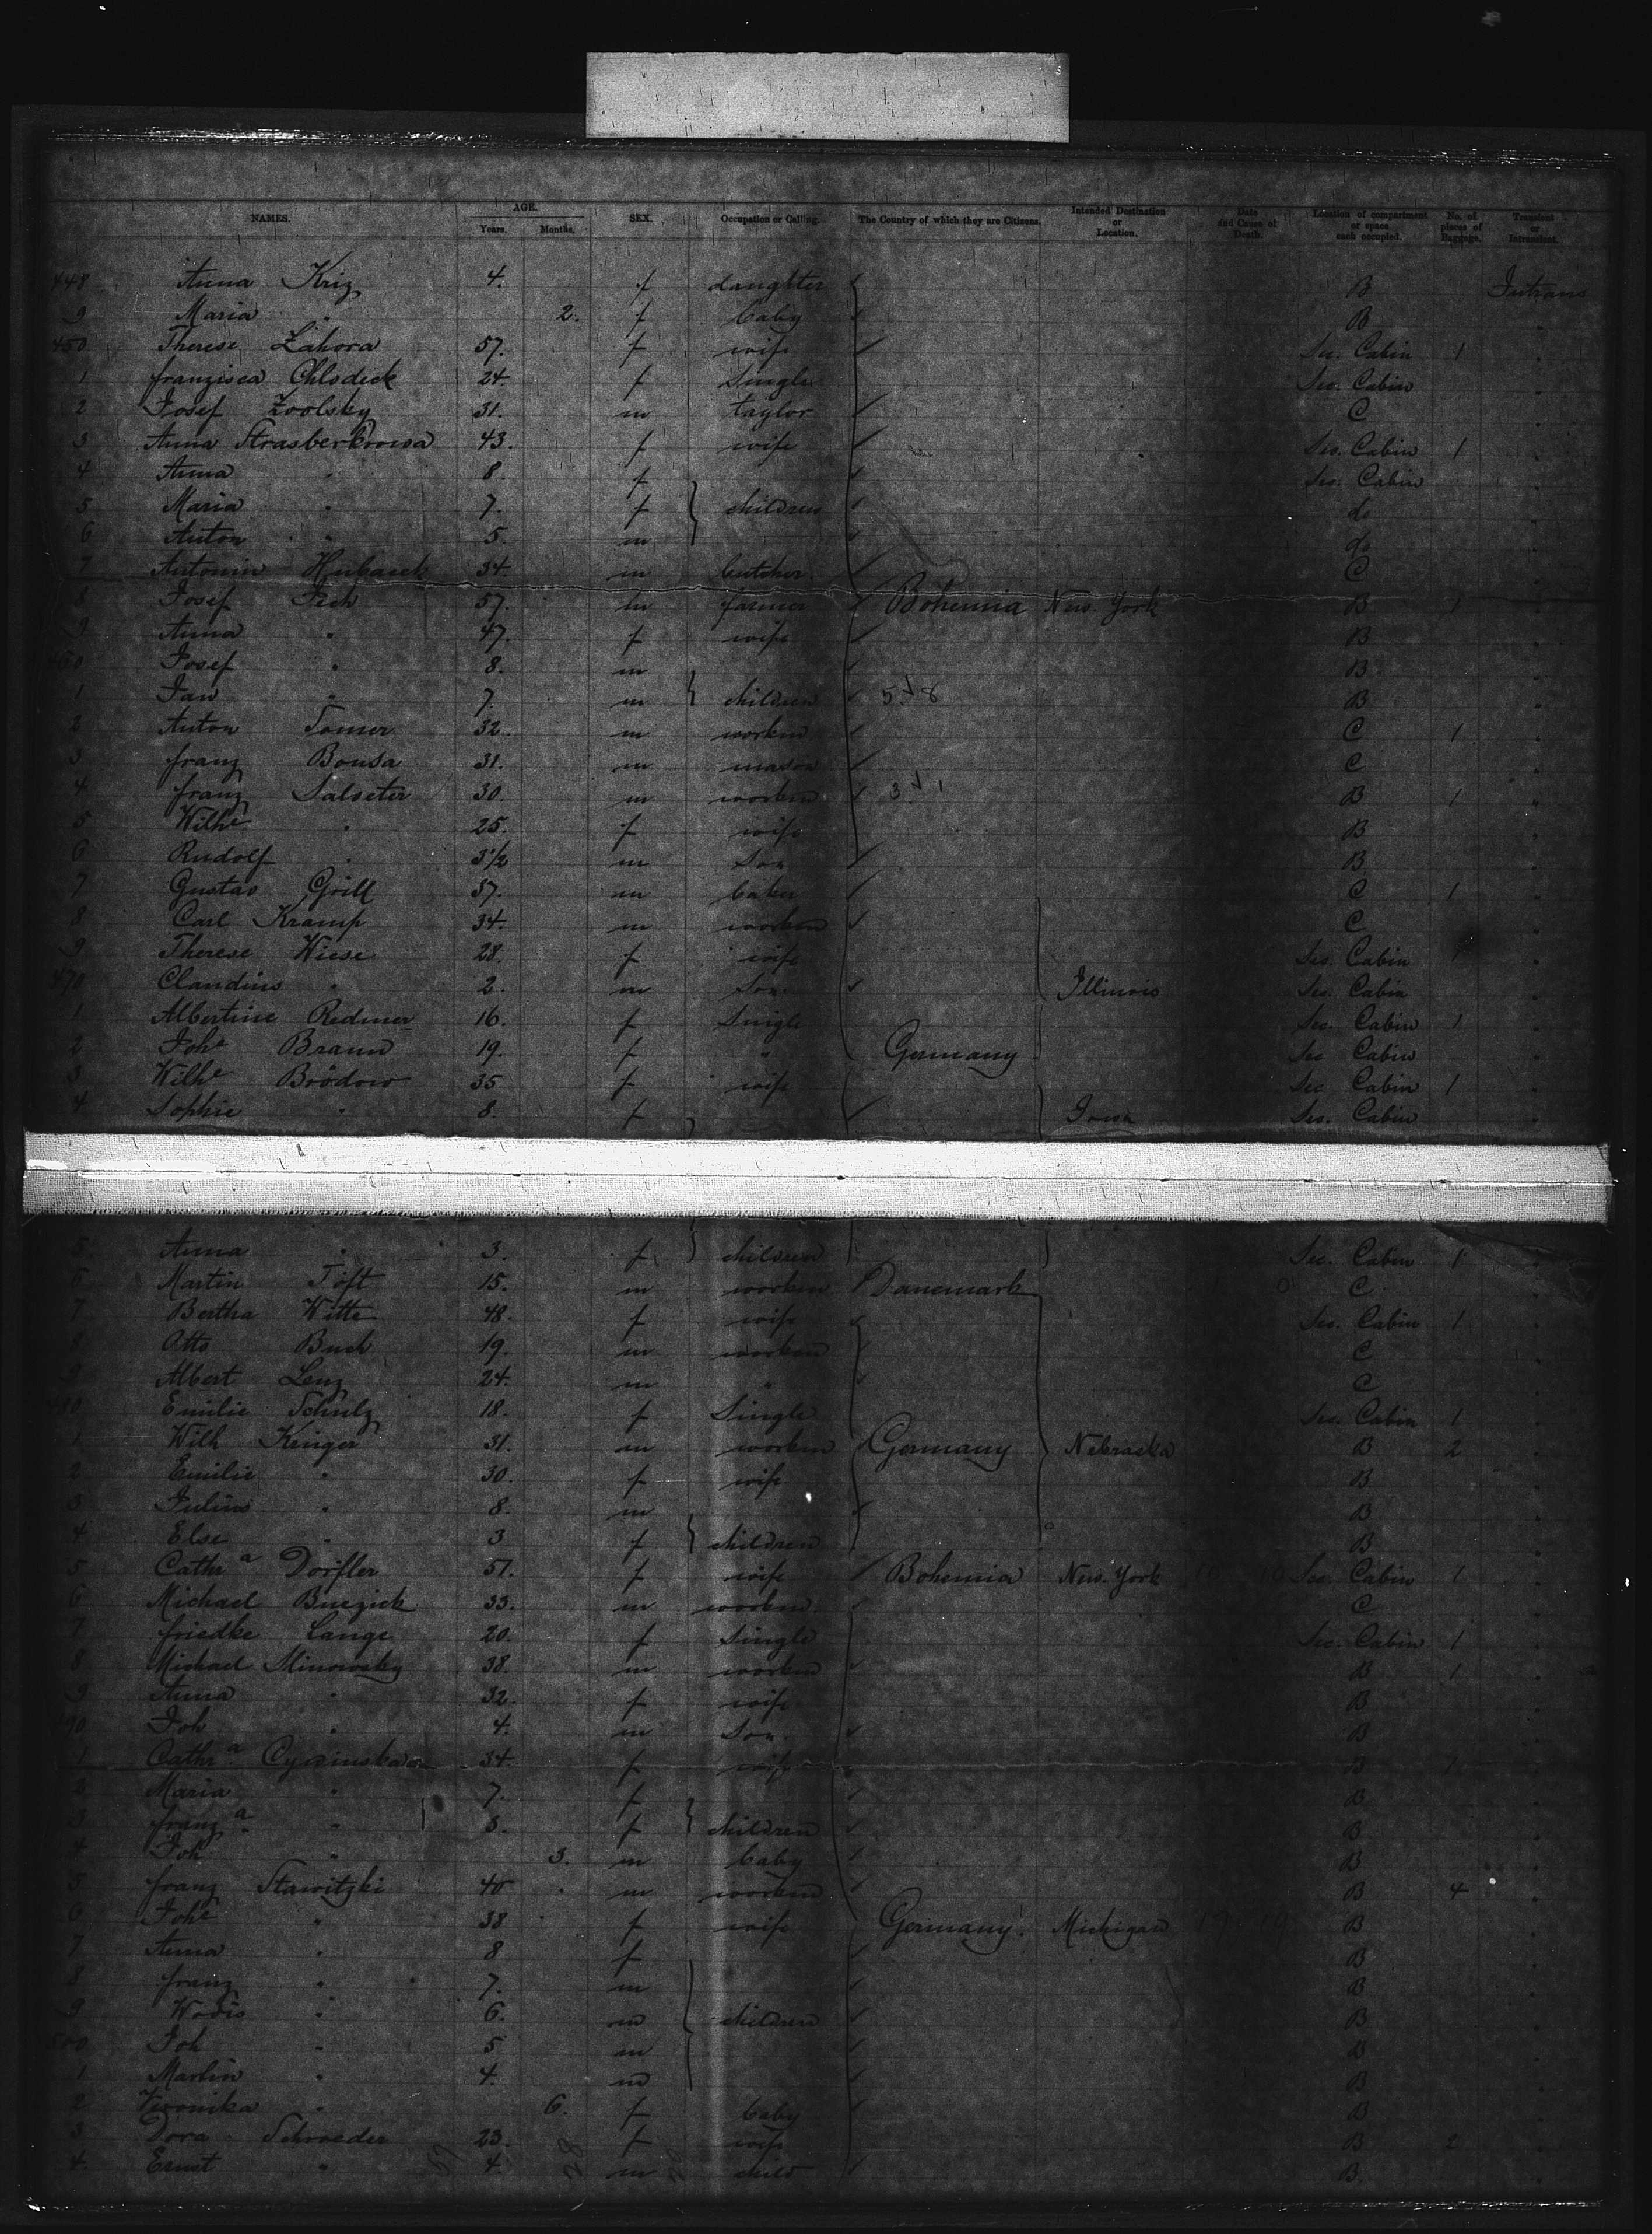 NAMES. AGE. Years. Months. SEX. Occupation or Calling. The Country of which they are Citizens. Intended Destination or Location. Date and Cause of Death. Location of compartment or space each occupied. No. of pieces of Baggage. Transient or Intransient.
448 Anna Kriz 4. f daughter B Intrans
9 Maria " 2. f baby B "
450 Therese Záhora 57. f wife Sec. Cabin 1 "
1 franzisca Chlodeck 24. f Single Sec. Cabin "
2 Josef 31. m taylor C "
3 Anna 43. f wife Sec. Cabin 1 "
4 Anna " 8. f Sec. Cabin "
5 Maria " 7. f children do "
6 Anton " 5. m do "
7 Antonin 34. m butcher C "
8 Josef Pech 57. m farmer Bohemia New. York B 1 "
9 Anna " 47. f wife B "
460 Josef " 8. m B "
1 Jan " 7. m children B "
2 Anton 32. m workm C 1 "
3 franz Bousa 31. m mason C "
4 franz Salseter 30. m workm B 1 "
5 Wilhe " 25. f wife B "
6 Rudolf " 3 1/2 m Son B "
7 Gustav Grill 37. m baker C 1 "
8 Carl Kramp 34. m workm C "
9 Therese Wiese 28. f wife Sec. Cabin 1 "
470 Claudius " 2. m Son Illinois Sec. Cabin "
1 Albertine Redmer 16. f Single Sec. Cabin 1 "
2 Johe Braun 19. f " Germany Sec Cabin "
3 Wilhe Brödow 35 f wife Sec Cabin 1 "
4 Sophie " 8. f Iowa Sec. Cabin "
5 Anna " 3. f children Sec. Cabin 1 "
6 Martin Toft 15. m workm Danemark C "
7 Bertha Witte 48. f wife Sec. Cabin 1 "
8 Otto Buch 19. m workm C "
9 Albert Lenz 24. m " C "
480 Emilie Schulz 18. f Single Sec. Cabin 1 "
1 Wilh Krüger 31. m workm Germany Nebraska B 2 "
2 Emilie " 30. f wife B "
3 Julius " 8. m B "
4 Else " 3 f children B "
5 Cathra Dorfler 51. f wife Bohemia New. York Sec. Cabin 1 "
6 Michael 33. m workm C "
7 friedke Lange 20. f Single Sec. Cabin 1 "
8 Michael 38. m workm B 1 "
9 Anna " 32 f wife B "
490 Joh " 4. m Son B "
1 Cathra 34. f wife B 1 "
2 Maria " 7. f B "
3 franza " 3. f children B "
4 Joh " 3. m baby B "
5 franz Stawitzki 40 m workm B 4 "
6 Johe " 38 f wife Germany. Michigan B "
7 Anna " 8 f B "
8 franz " 7. m B "
9 " 6. m children B "
500 Joh " 5 m B "
1 Martin " 4. m B "
2 Veronika " 6. f baby B "
3 Dora Schroeder 23. f wife B 2 "
4. Ernst " 4. m child B "